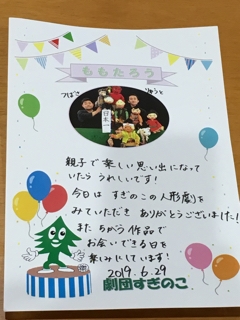 ももたろう
つばさ
ゆうと
日本一
親子で楽しい思い出になって
いたら うれしいです!
今日は すぎのこの人形劇を
みていただき ありがとうございました!
また ちがう作品で
お会いできる日を
楽しみにしています!
2019.6.29
劇団すぎのこ